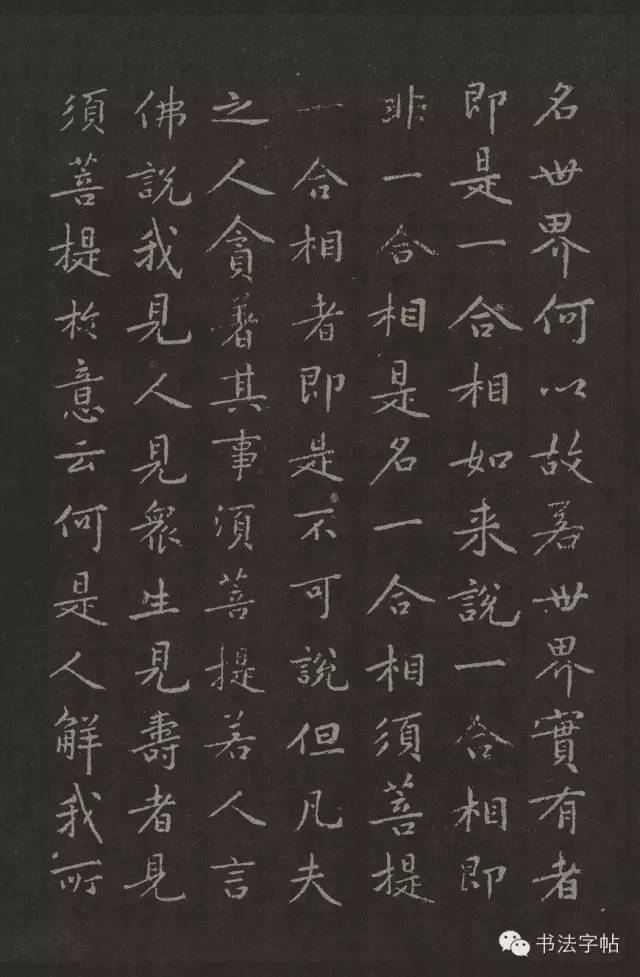 名世界何以故若世界實有者
即是一合相如来說一合相即
非一合相是名一合相須菩提
一合相者即是不可說但凡夫
之人貪着其事須菩提若人言
佛說我見人見衆生見壽者見
須菩提於意云何是人解我所
书法字帖